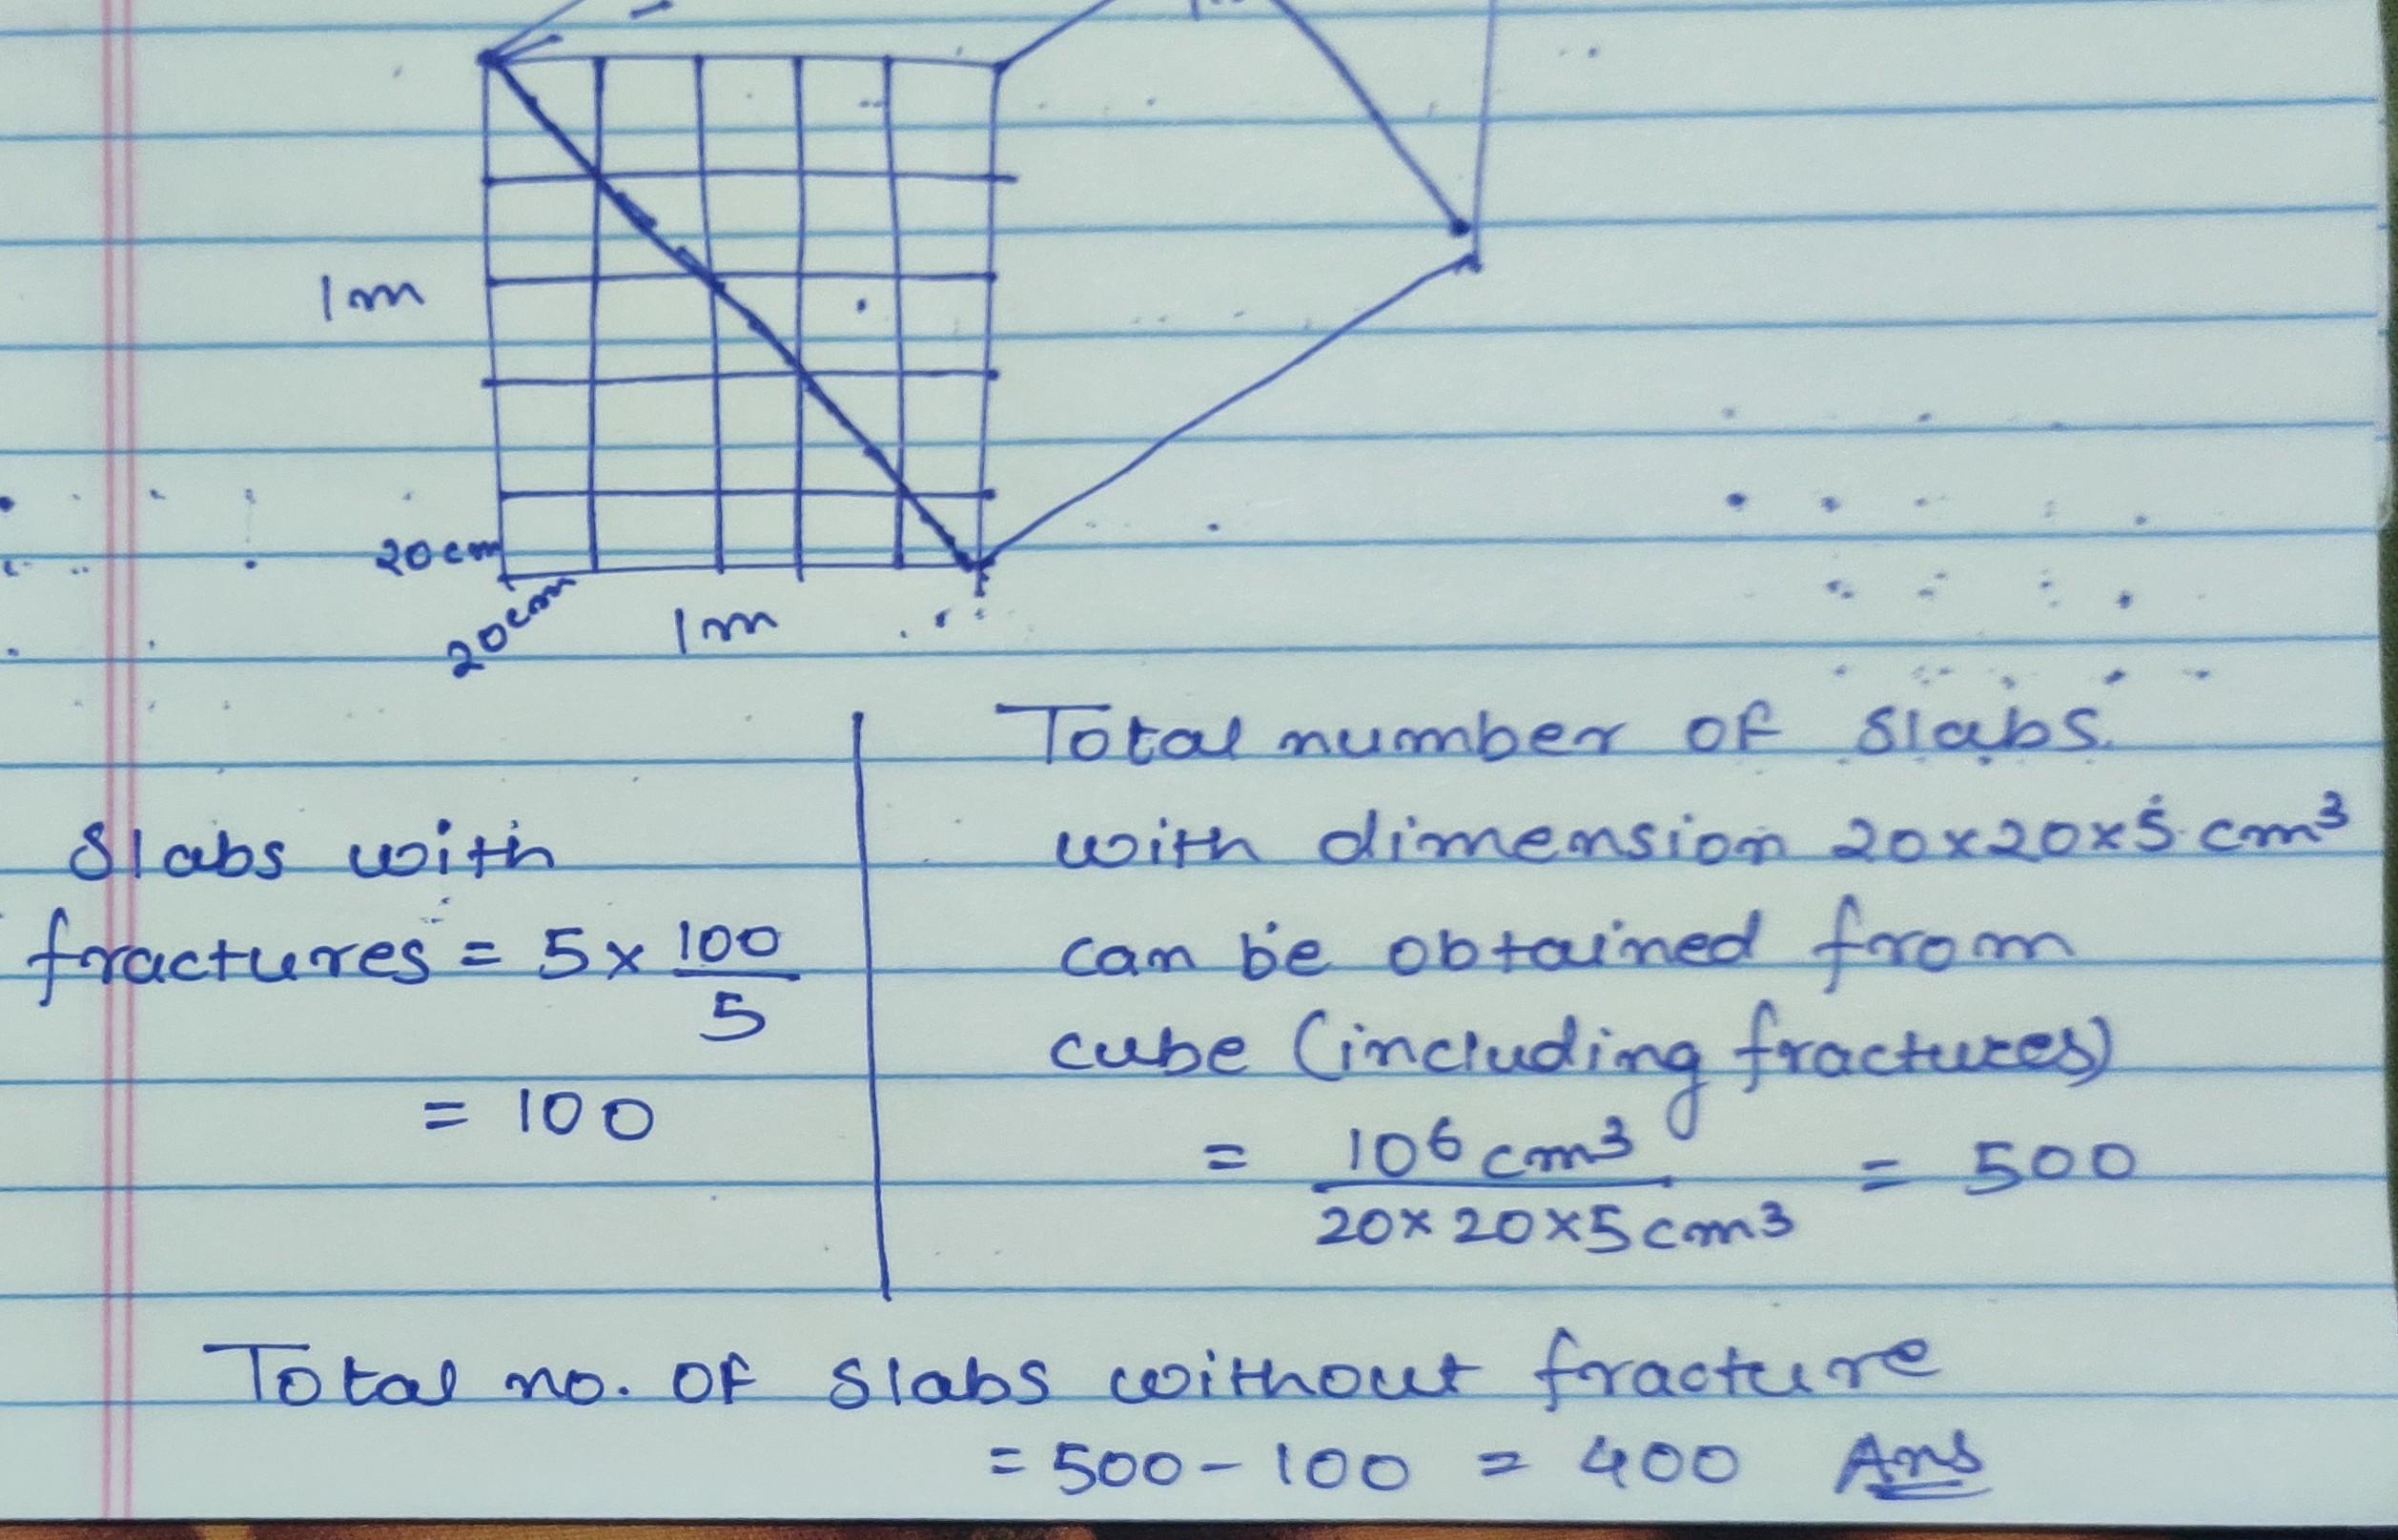 1m
20cm
20cm
1m
Slabs with
fractures = 5 × 100/5
= 100
Total number of slabs.
with dimension 20×20×5 cm³
can be obtained from
cube (including fractures)
= 10⁶ cm³ / 20×20×5 cm³ = 500
Total no. of slabs without fracture
= 500 - 100 = 400 Ans